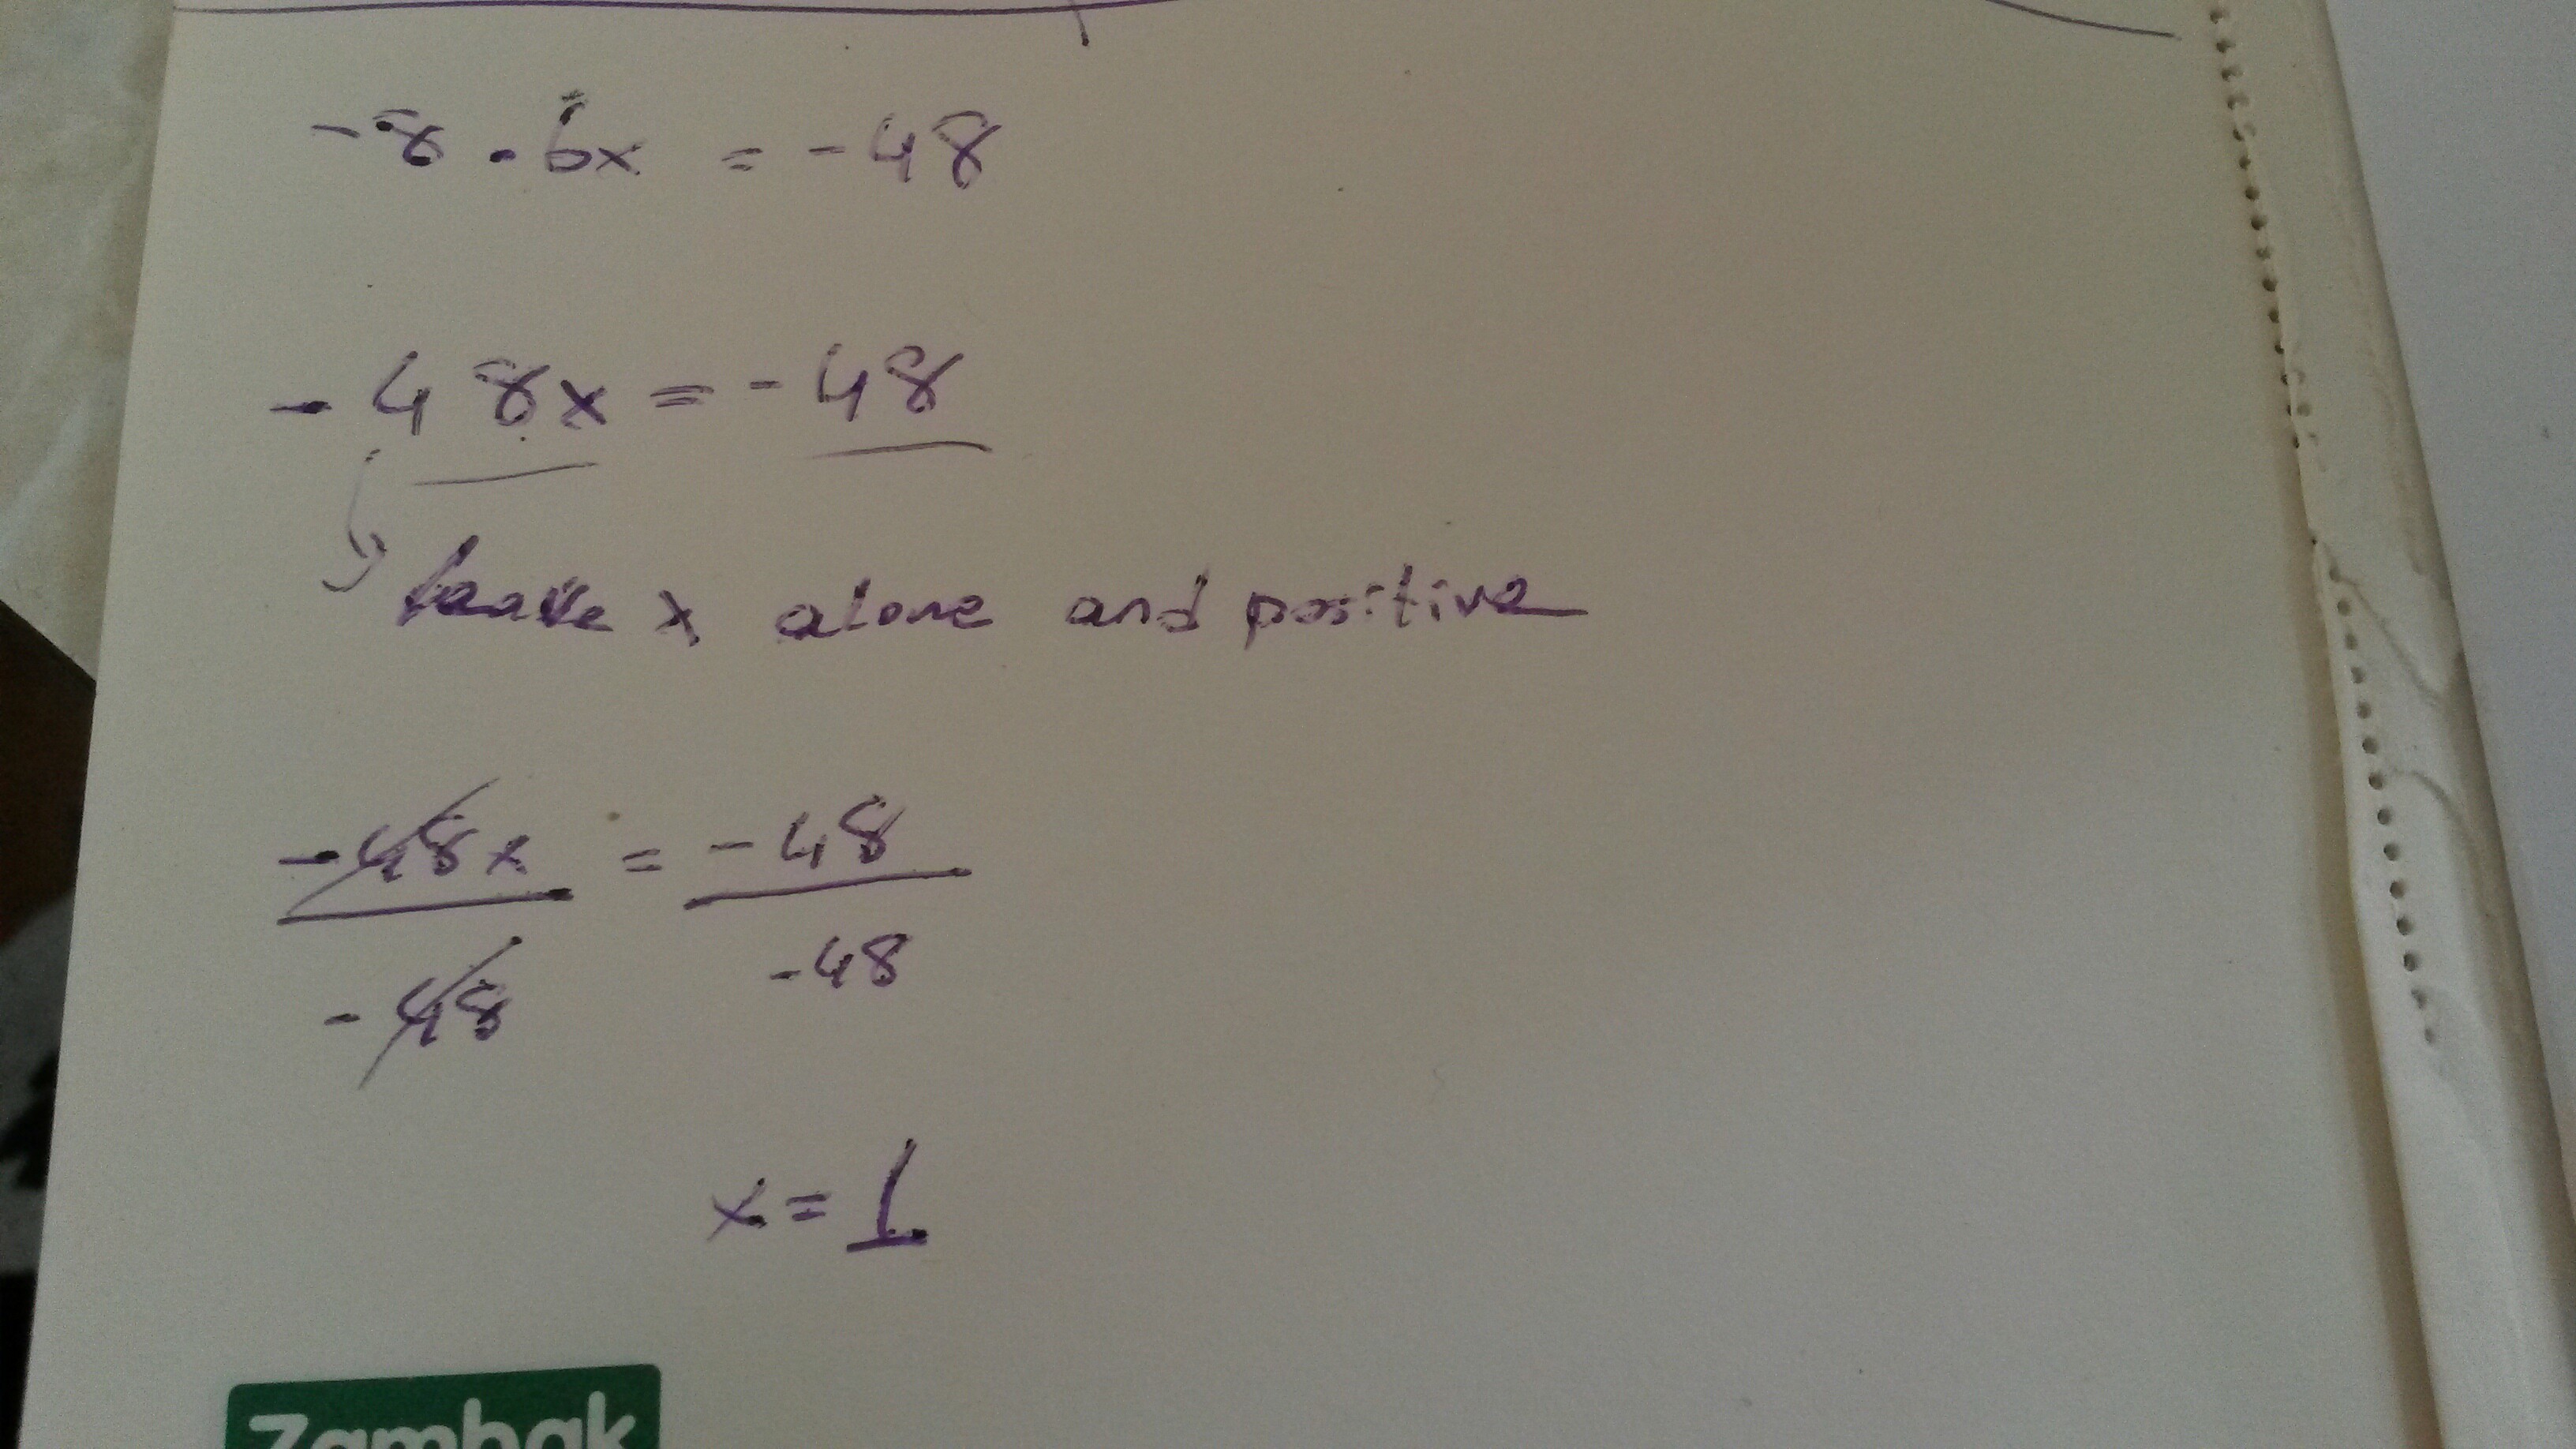 -8 . 6x = -48
-48x = -48
x alone and positive
-48x = -48
-48 -48
x = 1
Zambak